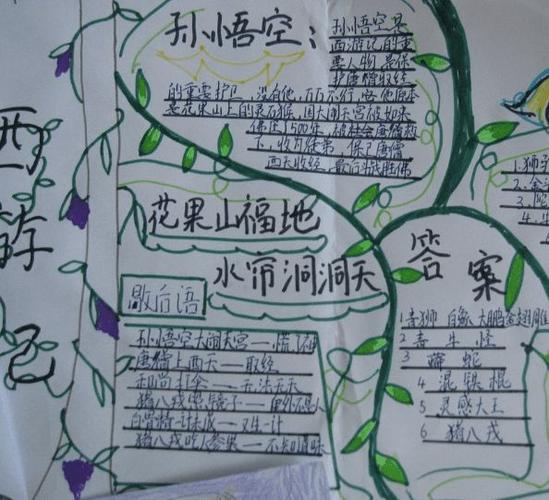 西
游
记
孙悟空：
孙悟空是
西游记的主
要人物,是保
护唐僧取经
的重要护卫,没有他,万万不行,
是花果山上的灵石猴,因大闹天宫被如来
佛压500年,
下,收为徒弟,保卫唐僧
西天取经,最后战胜佛
花果山福地
水帘洞洞天
歇后语
孙悟空大闹天宫—慌了神
唐僧上西天—取经
和尚打伞—无法无天
猪八戒照镜子—里外不是人
白骨精 一计未成—又生一计
猪八戒吃人参果—不知滋味
答案
1 青狮 白象 大鹏金翅雕
2 青牛怪
3 蛇
4 混铁棍
5 灵感大王
6 猪八戒
1.狮
2.金
3.
4.